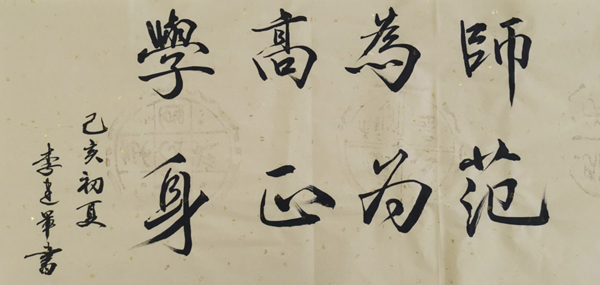 學高為師
身正为范
己亥初夏
李建書